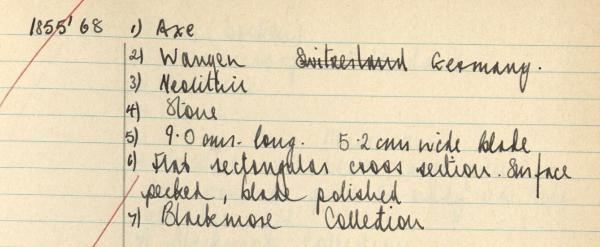 1855'68 1) Axe
2) Wangen Switzerland Germany.
3) Neolithic
4) Stone
5) 9.0 cms. long. 5.2 cms wide blade
6) Flat rectangular cross section. Surface
pecked, blade polished
7) Blackmore Collection